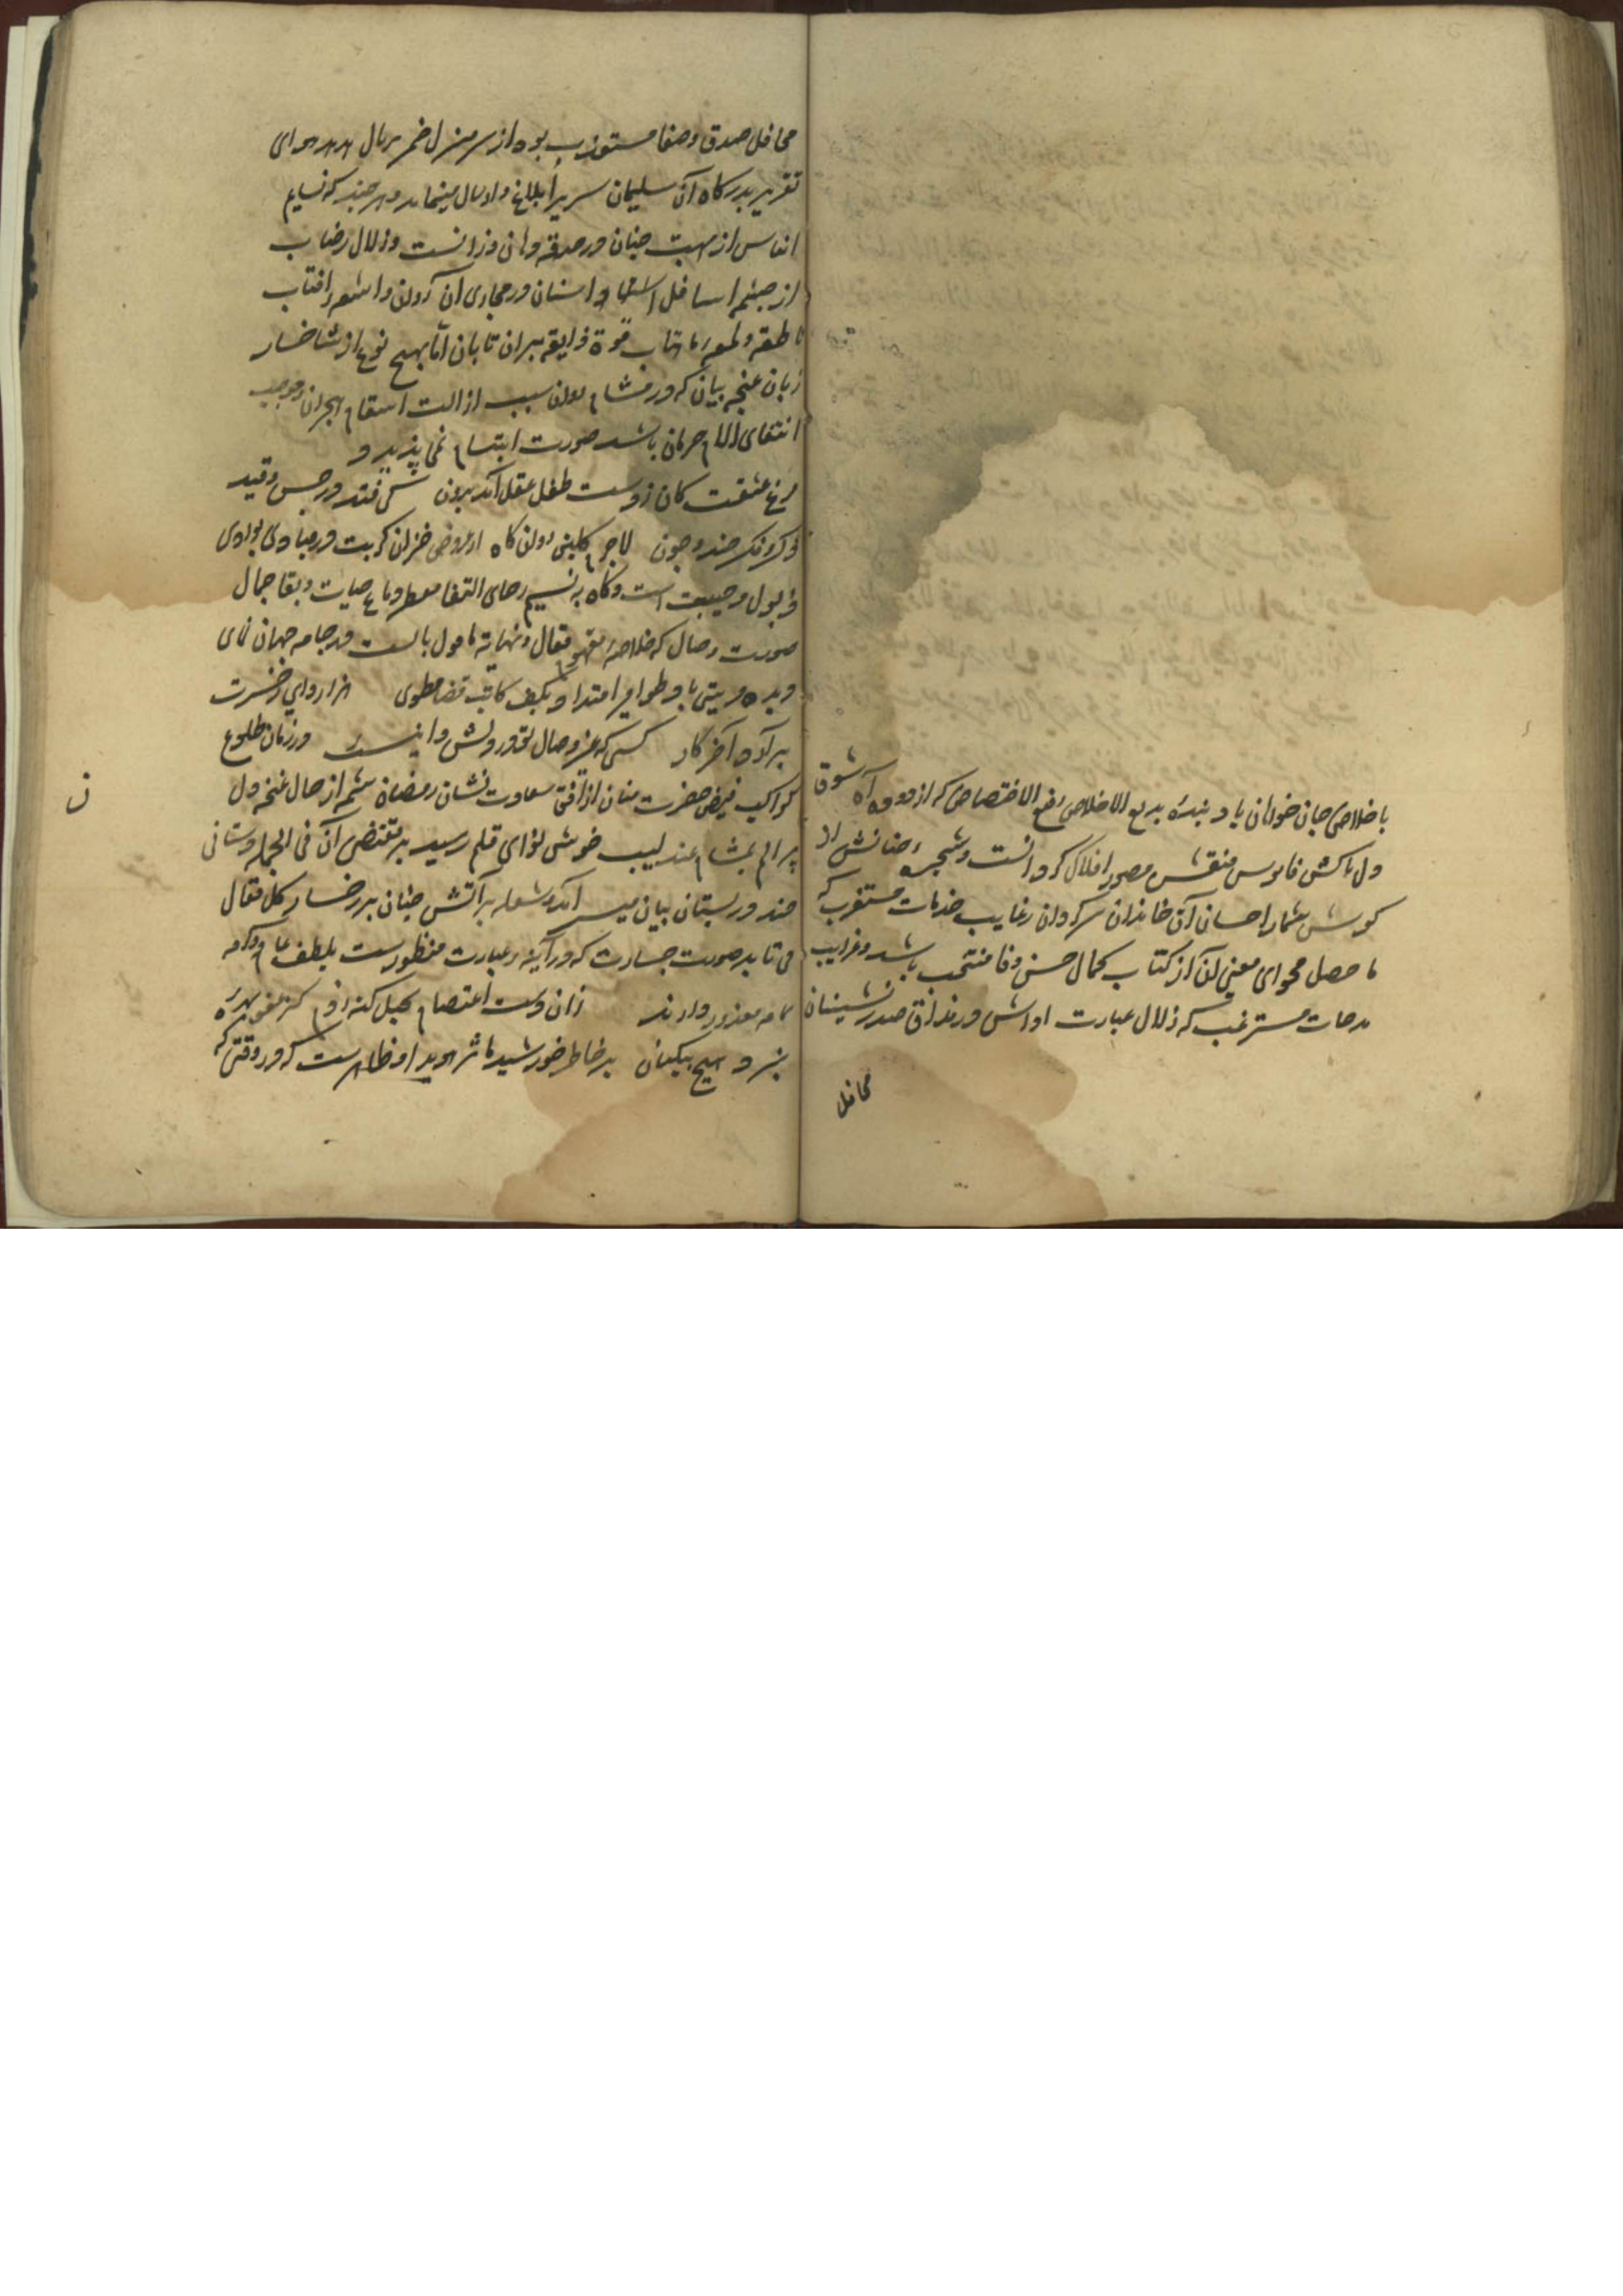 با خلاصی جان خواهان باد بنده بدیع الاخلاص رفیع الاختصاص که از دوده آه شوق
دل پاکش فانوس منقش مصور افلاک کرد انست و شجره جنانش از
کوشش شمار احسان آن خاندان سرکردان رغایب خدمات مستغرب که
ما حصل فحوای معنی آن از کتاب کمال حسن وفا منتخب باشد و غرایب
مدحات مسترغب که زلال عبارت اداش در مذاق صدرنشینان
محافل
محافل صدق و صفا مستعذب بود از سر منزل ضمیر ببال هدهد هوای
تقریر بدرکاه آن سلیمان سریر ابلاغ و ارسال مینماید و هر چند که نسایم
انفاس از مهبت جنان در حدقه دهان وزانست و زلال رضاب
از چشم اسافل و اسنان در مجاری آن روان و اشعه افتاب
ناطقه و لمعه ماهتاب قوة ذایقه بر ان تابان اما بهیچ نوع از شاخسار
زبان غنچه بیان که در مشام سبب ازالت اسقام هجران و موجب
انتفای آلام حرمان باشد صورت ابتسام نمی پذیرد و
مرغ عشقت کان ز دست طفل عقل آمد برون کی فتد در حبس و قید
فکر و مکر چند و چون لاجرم کلبن روان کاه از عروض خزان کربت در مبادی بوادی
ذبول و خیبت است و کاه به نسیم رجای التقا معطر دماغ حیات و بقا جمال
صورت وصال که خلاصه مفهوم مقال و نهایه مامول بالست در جام جهان نمای
دیده مرئی باد و طوامیر امتداد بکف کاتب قضا مطوی هزار وای ز حسرت
برآرد آخر کار کسی که عز وصال تو در دلش و اینست در زمان طلوع
کواکب فیض حضرت منان از افق سعادت نشان رمضان شمه از حال غنچه دل
پر الم بمشام عندلیب خوش نوای قلم رسید بر مقتضی آن فی الجمله دستانی
چند در بستان بیان میسر آمد و شعله بر آتش جنان بر رخسار کل مقال
می تابد صورت جسارت که در آینه عبارت منظورست بلطف عام و کرم
تمام معذور دارند زان دست اعتصام بحبل کنه زدم کز عفو بهره
نبرد هیچ بیکناه بر خاطر خورشید ماثر هویدا و ظاهرست که در وقتی که
ن